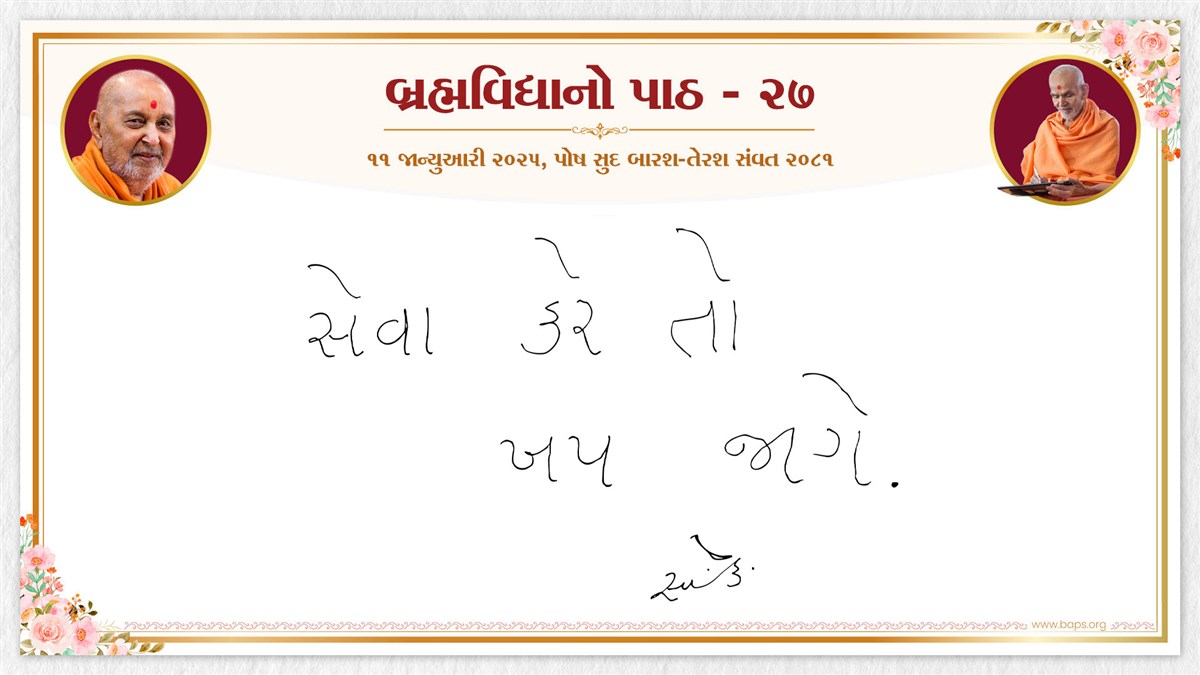 બ્રહ્મવિદ્યાનો પાઠ - ૨૭
૧૧ જાન્યુઆરી ૨૦૨૫, પોષ સુદ બારશ-તેરશ સંવત ૨૦૮૧
સેવા કરે તો
ખપ જાગે.
www.baps.org